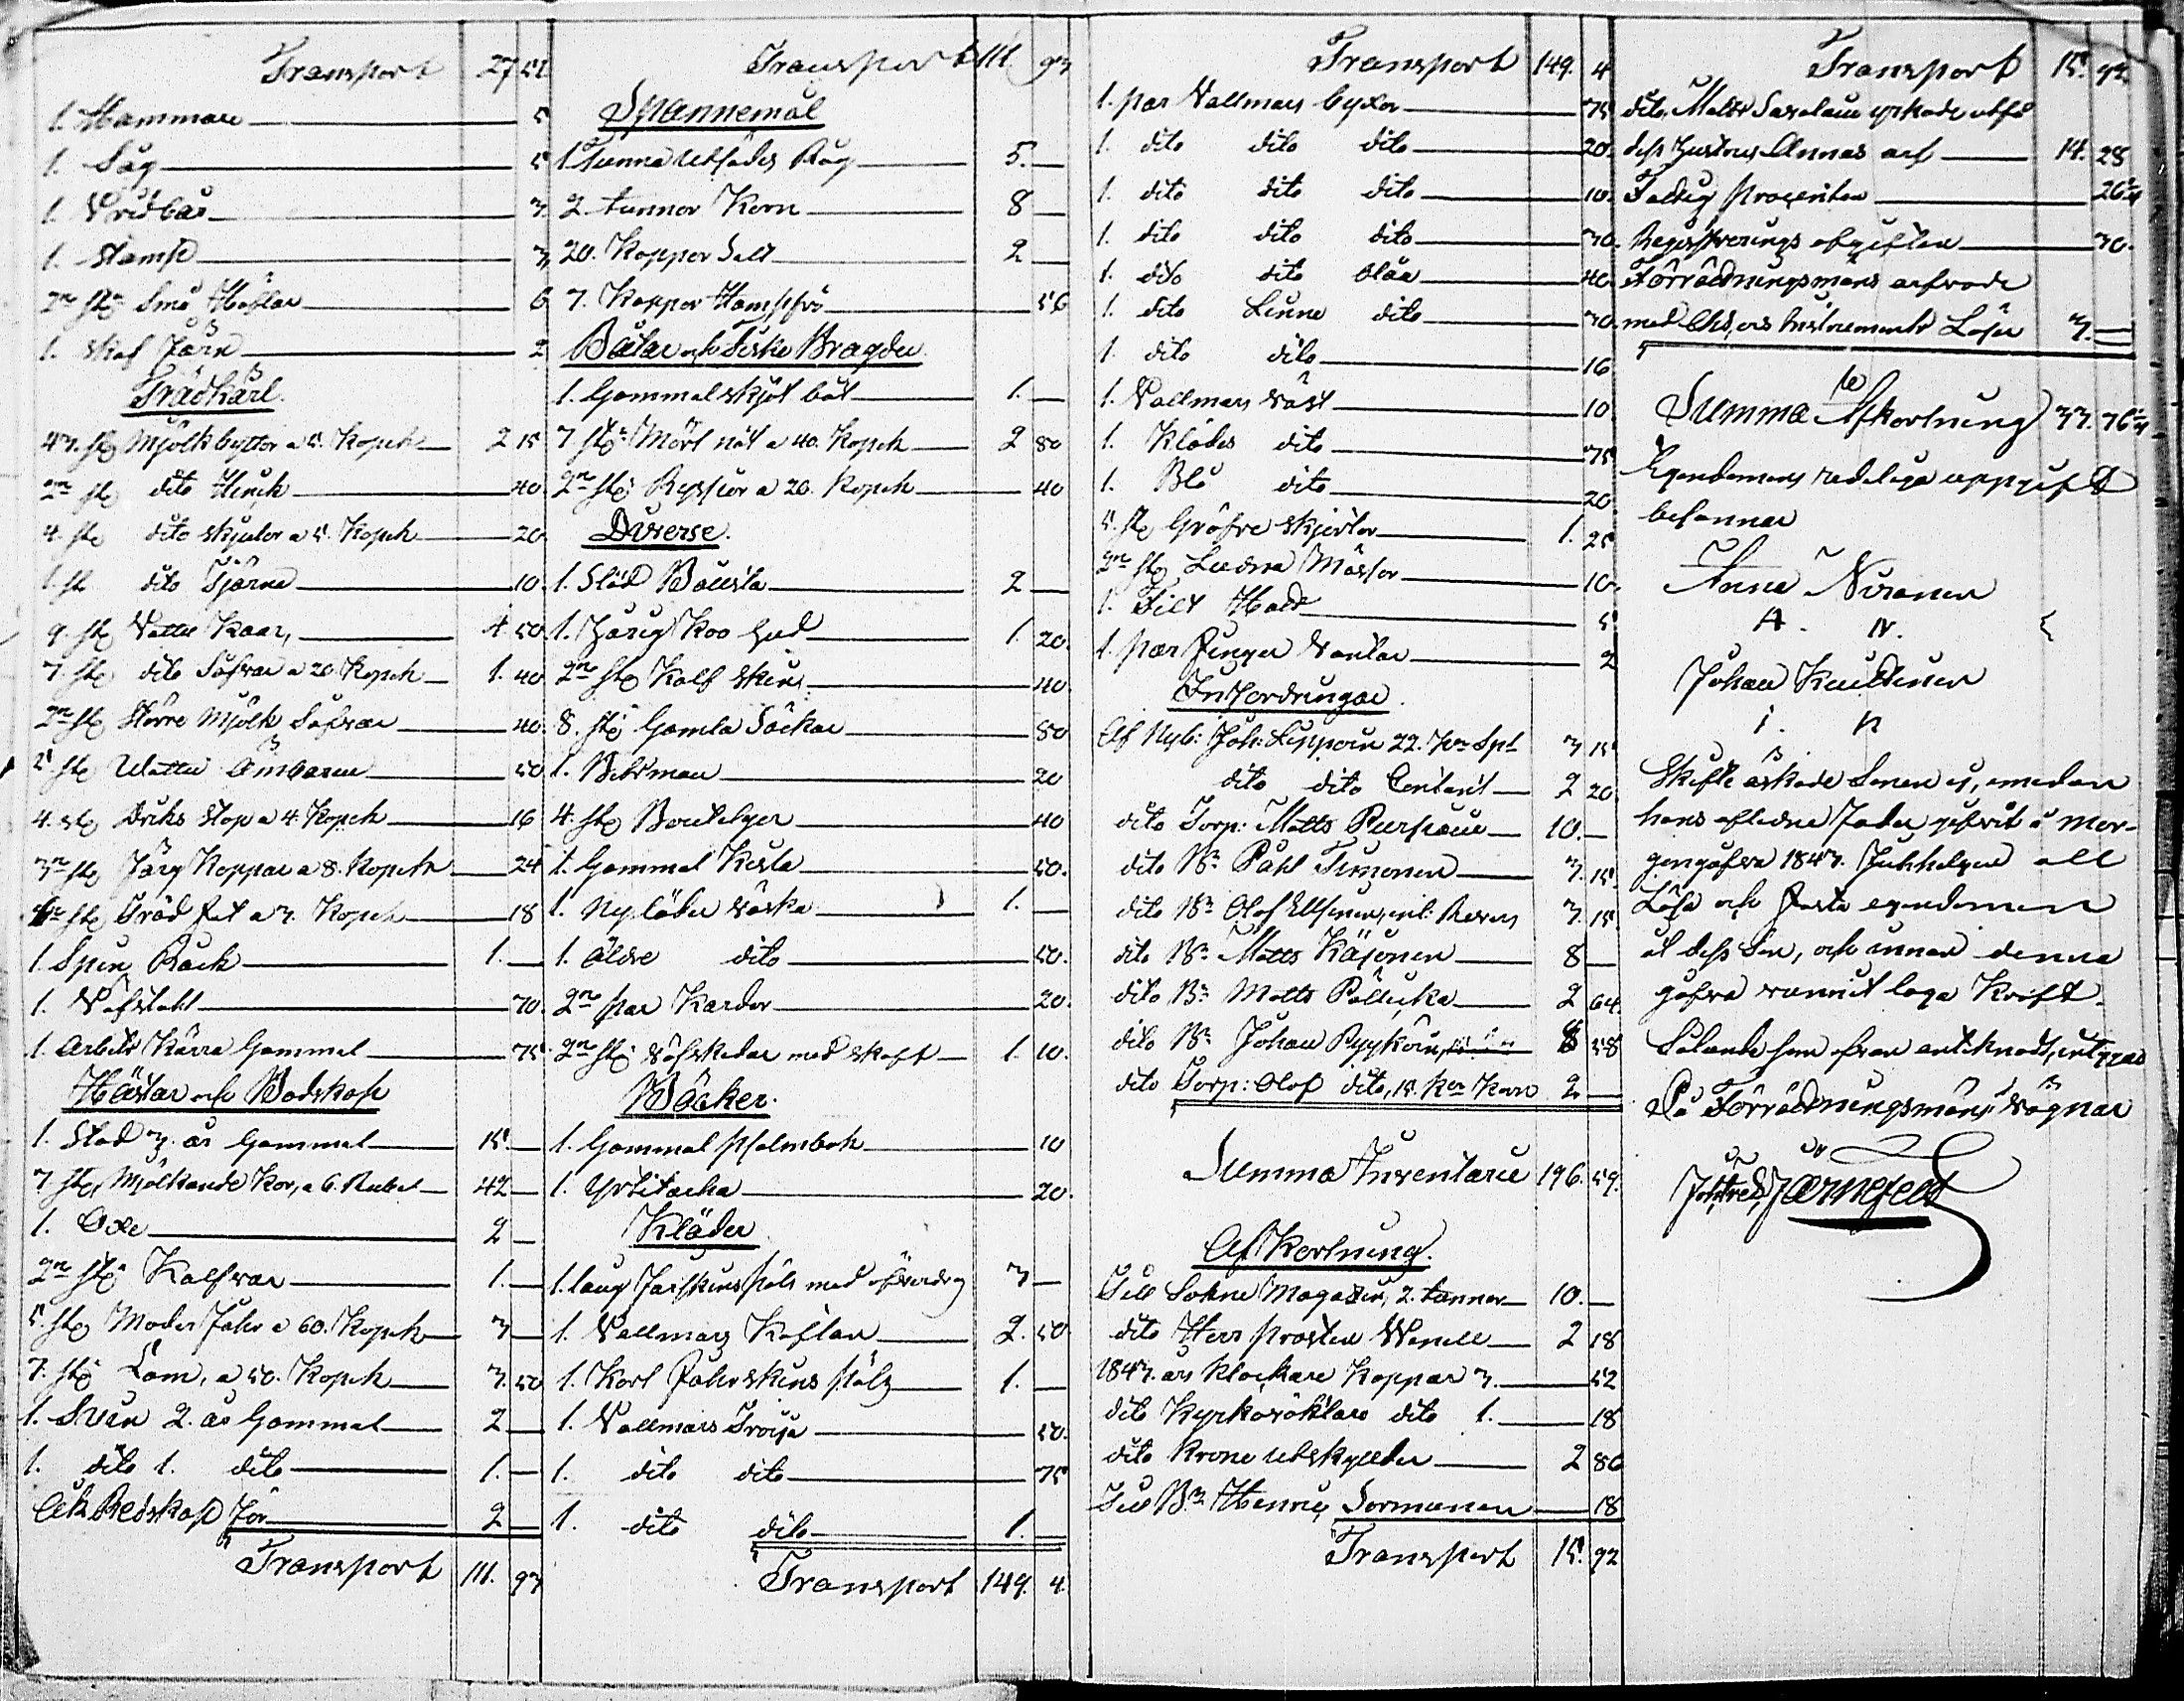 Transport 27 51
1. Hammare 5
1. Såg 5
1. Vridbår 3
1. Stamp 3
2ne st. Små Höflar 6
1. Skaf Järn 2
Trädkäril.
43. st. Mjölkbyttor a 5. Kopek 2 15
2ne st. dito Hinck 40
4. st. dito skjulor a 5. Kopek 20
1. st. dito Tjärna 10
9. st. Vattu Kaar, 4. 50
7. st. dito Såfvar a 20. Kopek 1. 40
2ne st. Större Mjölk Såfvar 40
5. st. Vattu Ämbaren 50
4. st. Driks stop a 4. Kopek 16
3ne st. Färg Koppar a 8. Kopek 24
st. Träd fat a 3. Kopek 18
1. Spin Råck 1.
1. Väfstohl 70.
1. Arbets Kärra Gammal 75
Hästar och Bodskap
1. Stod 3. år Gammal 15.
7. st. Mjölkande Kor, a 6. Rubel 42
1. Oxe 2
2ne st. Kalfvar 1.
5. st. Moder Fåhr a 60. Kopek 3
7. st. Lam, a 50. Kopek 3. 50
1. Svin 2. år Gammal 2
1. dito 1. dito 1.
Åk Redskap för 2
Transport 111. 93
Transport 111. 93
Spannemål
1. Tunna utsådes Råg 5.
2. tunnor Korn 8
20. Kappor Salt 2
7. Kappor Hampfrö 56
Båtar och Fiske Bragder
1. Gammal skjöt båt 1.
7. st. Mört nöt a 40. Kopek 2 80
2ne st. Ryssjor a 20. Kopek 40
Diverse.
1. Slåd Bössa 2
1. Färig Koo hud 1. 20.
2ne st. Kalf skins 40.
8. st. Gamla Säckar 80
1. Betsman 20
4. st. Boutelger 40
1. Gammal Kista 50.
1. Ny läder väska 1.
1. Äldre dito 50.
2ne par Kardor 20.
2ne st. väfskedar med skaft 1. 10.
Böcker.
1. Gammal Psalmbok 10
1. Yrtitarha 20.
Kläder
1. lång Fårskins päls med öfverdrag 3
1. Vallmars Kaftan 2. 50.
1. Kort Fåhrskins pälz 1.
1. Vallmars Tröija 50.
1. dito dito 75
1. dito dito 1.
Transport 149. 4.
Transport 149. 4
1. par Vallmars byxor 75
1. dito dito dito 20.
1. dito dito dito 10.
1. dito dito dito 30.
1. dito dito blåa 40.
1. dito Linne dito 30.
1. dito dito 16
1. Vallmars väst 10
1. Klädes dito 75
1. Blå dito 20
5. st. Gröfre skjortor 1. 25
2ne st. Ludna Mössor 10.
1. Filt Hatt 5
1. par Finger vantar 2
Infordringar.
Af Nyb: Joh: Lipponen 22. Kr Spl 3 15
dito dito Contant 2 20.
dito Torp: Matts Pursiain 10.
dito Bn Påhl Timonen 3. 15.
dito Bn Olof Revers 3. 15.
dito Bn Matts Käjonen 8
dito Bn Matts Pölluka 2 64.
dito Bn Johan Pyykön 8 58
dito Torp: Olof dito, 15. Kr Korn 2
Summa Inventarie 196. 59.
Afkortning.
Till Sokne Magazin, 2. tunnor 10.
dito Herr Prosten Wenell 2 18
1843. års Klockare Kappar 3. 52
dito Kyrkovöktare dito 1. 18
dito Krono utskylder 2 86
Till Bn Henric Sormunen 18
Transport 15. 92
Transport 15. 92.
dito Matts yrkade utfå
dess hustrus Annas arf 14. 28
Fattig Procenten 26 1/4
Registrerings afgiften 30.
Förrättningsmans arfvode
med Instruments Lösen 3.
Summa Afkortning 33. 76 1/4
Egendomens redeliga uppgift
bekannar
Anna Nironen
A. N.
Johan Knuttinen
i. n
Skifte äskade Sonen ej, emedan
hans aflidne Fader gifvit i mor-
gongåfva 1843. all
Lösa och fasta egendomen
åt dess Son, och innan denna
gåfva vunnit laga Kraft.
Sålunda som ofvan anteknadt, intygar
På Förrättningsmäns vägnar
Joh Fred Järnefelt